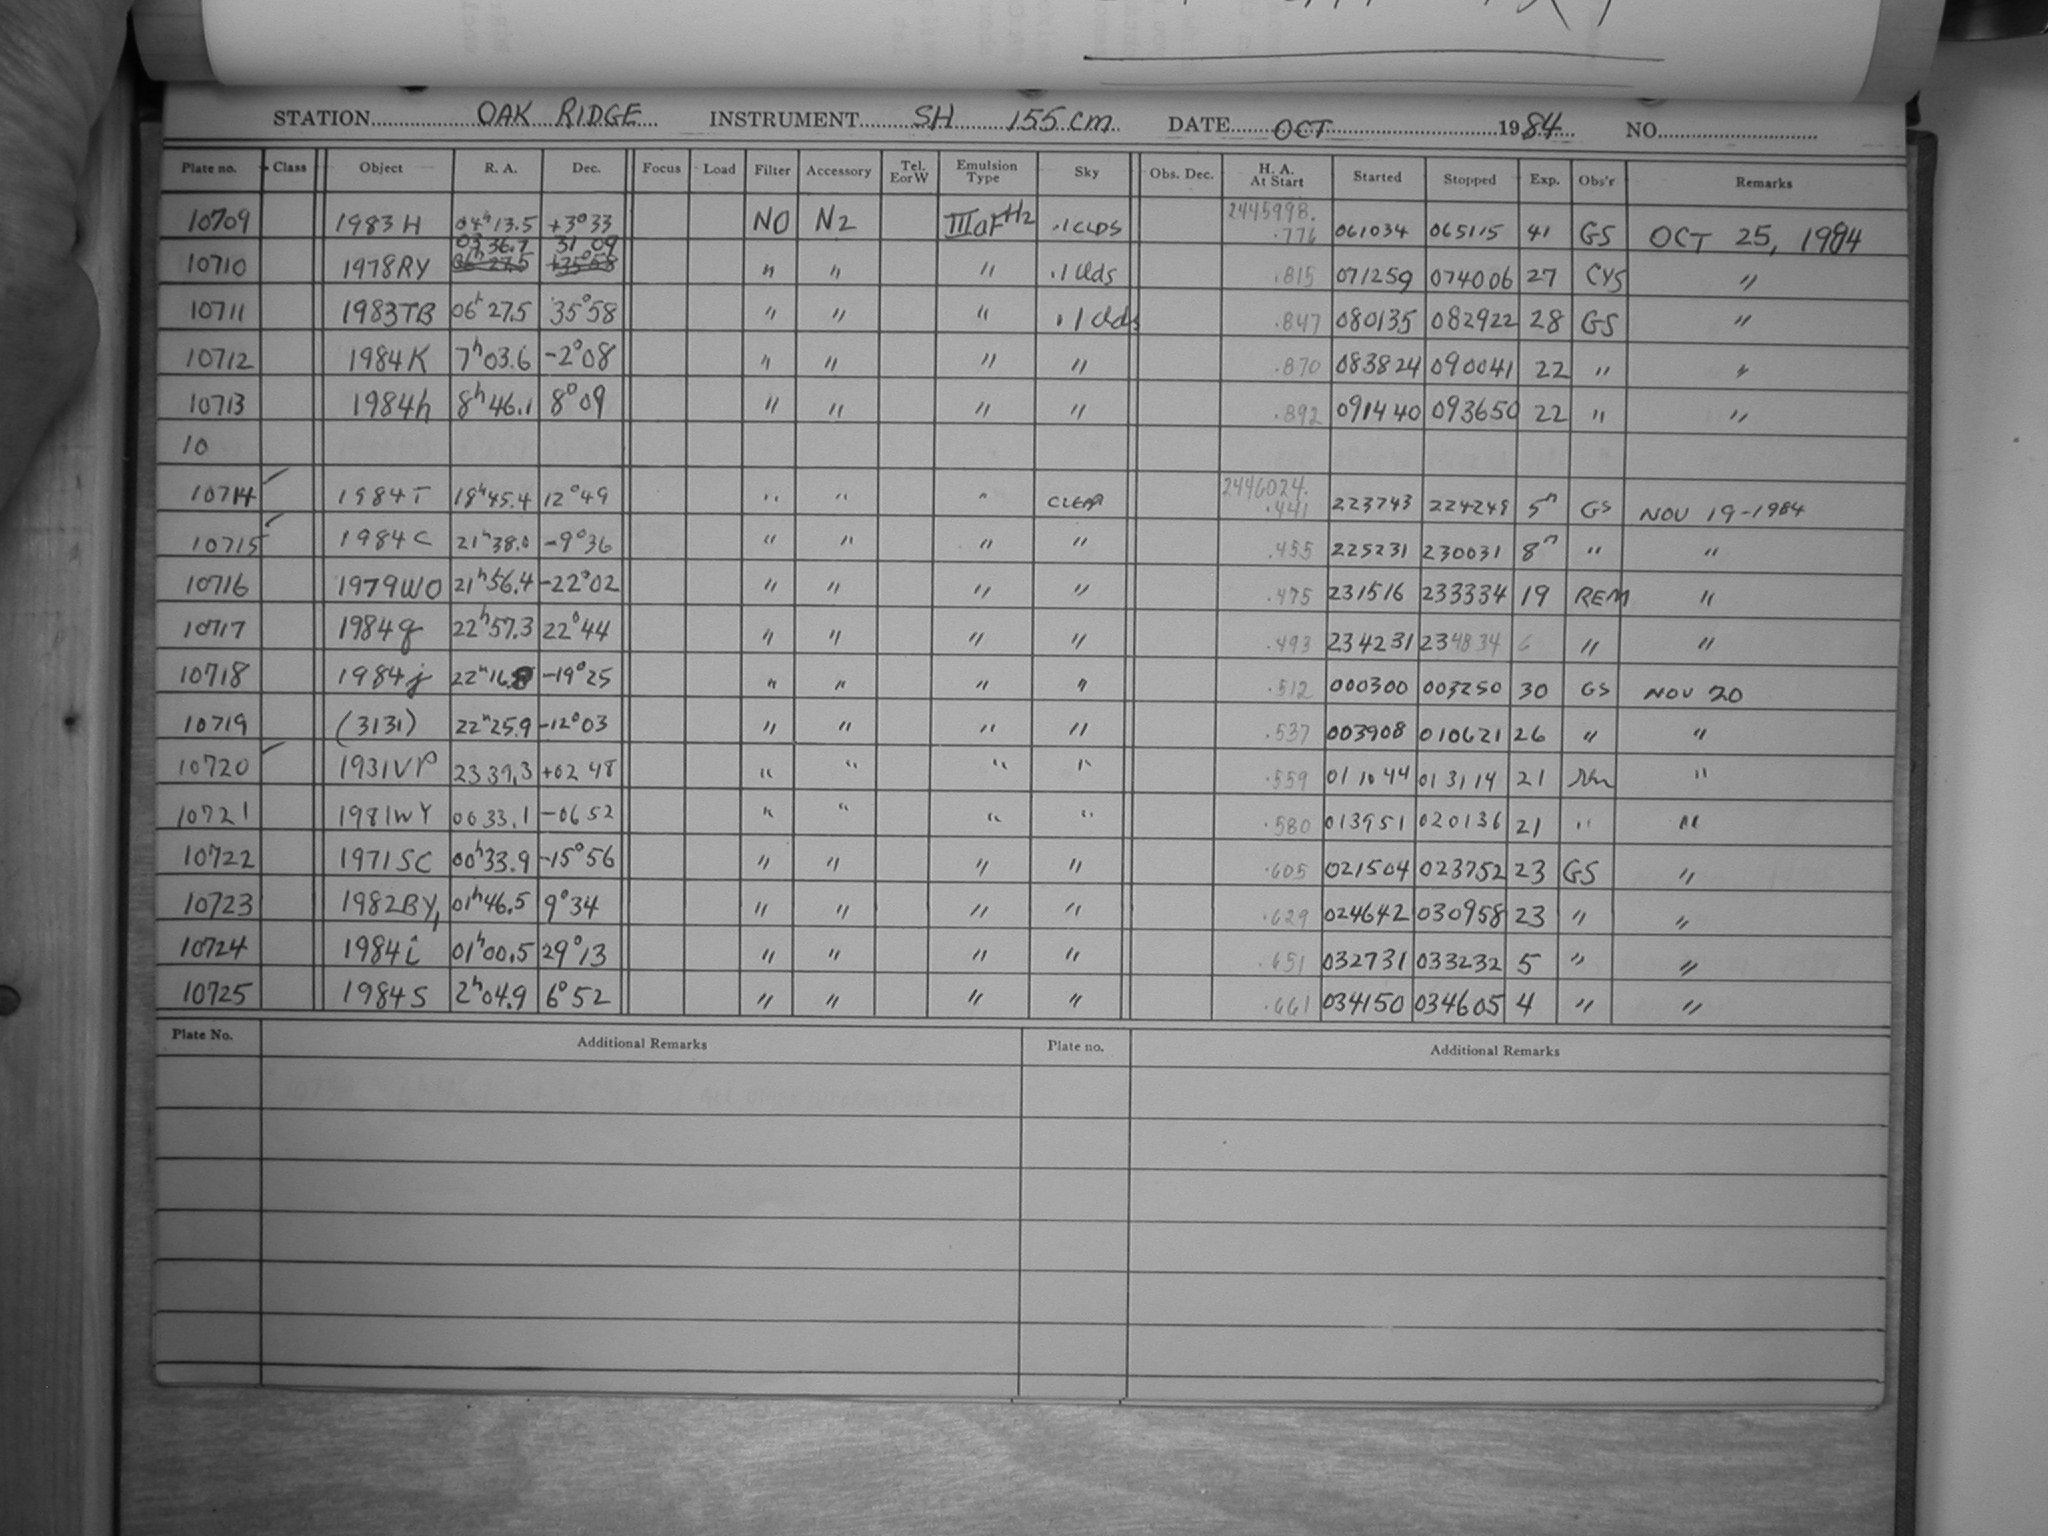 STATION OAK RIDGE INSTRUMENT SH 155 cm DATE OCT 1984 NO.
Plate no. Class Object R. A. Dec. Focus Load Filter Accessory Tel. E or W Emulsion Type Sky Obs. Dec. H. A. At Start Started Stopped Exp. Obs'r Remarks
10709 1983 H 04h13.5 +3°33 NO N2 IIIaF H2 .1 CLDS 2445998. .776 061034 065115 41 GS OCT 25, 1984
10710 1978RY 03 36.7 31 09 " " " .1 Clds .815 071259 074006 27 CYS "
10711 1983TB 06h27.5 35°58 " " " .1 Clds .847 080135 082922 28 GS "
10712 1984K 7h03.6 -2°08 " " " " .870 083824 090041 22 " "
10713 1984h 8h46.1 8°09 " " " " .892 091440 093650 22 " "
10
10714 ✓ 1984T 18h45.4 12°49 " " " CLEAR 2446024. .441 223743 224249 5m GS NOV 19-1984
10715 ✓ 1984C 21h38.0 -9°36 " " " " .455 225231 230031 8m " "
10716 1979WO 21h56.4 -22°02 " " " " .475 231516 233334 19 REM "
10717 1984q 22h57.3 22°44 " " " " .493 234231 234834 6 " "
10718 1984j 22h16.8 -19°25 " " " " .512 000300 003250 30 GS NOV 20
10719 (3131) 22h25.9 -12°03 " " " " .537 003908 010621 26 " "
10720 ✓ 1931VP 23 39.3 +02 48 " " " " .559 011044 013114 21 "
10721 1981WY 00 33.1 -06 52 " " " " .580 013951 020136 21 " "
10722 1971SC 00h33.9 -15°56 " " " " .605 021504 023752 23 GS "
10723 1982BY1 01h46.5 9°34 " " " " .629 024642 030958 23 " "
10724 1984i 01h00.5 29°13 " " " " .651 032731 033232 5 " "
10725 1984S 2h04.9 6°52 " " " " .661 034150 034605 4 " "
Plate No. Additional Remarks Plate no. Additional Remarks